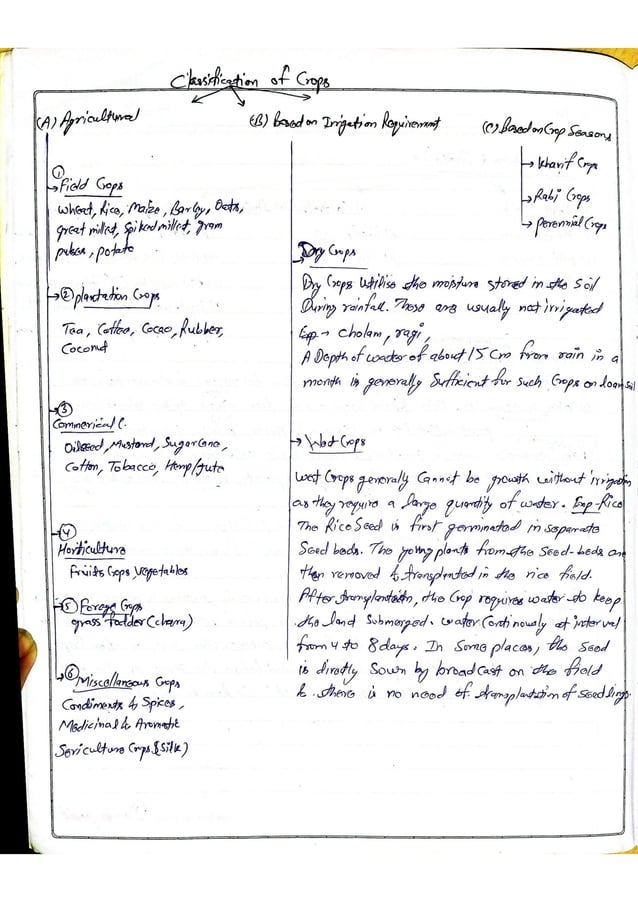 Classification of Crops
(A) Agricultural
(B) Based on Irrigation Requirement
(C) Based on Crop Seasons
→ Kharif Crops
→ Rabi Crops
→ Perennial Crops
①
→ Field Crops
Wheat, Rice, Maize, Barley, Oats,
great milled, spiked milled, gram
pulses, potato
→ ② plantation Crops
Tea, Coffea, Cacao, Rubber,
Coconut
→ ③
Commerical C.
Oilseed, Mustard, Sugarcane,
Cotton, Tobacco, Hemp/Jute
→ ④
Horticulture
Fruits Crops, Vegetables
→ ⑤ Forage Crops
grass fodder (chara)
→ ⑥ Miscellaneous Crops
Condiments & Spices,
Medicinal & Aromatic
Sericulture Crops (Silk)
→ Dry Crops
Dry Crops Utilise the moisture stored in the Soil
During rainfall. These are usually not irrigated
Exp → cholam, ragi,
A Depth of water of about 15 Cm from rain in a
month is generally Sufficient for such Crops on loam soil
→ Wet Crops
Wet Crops generally Cannot be growth without irrigation
as they require a large quantity of water. Exp - Rice
The Rice Seed is first germinated in separate
Seed beds. The young plants from the seed-beds are
then removed & transplanted in the rice field.
After transplantation, the Crop requires water to keep
the land submerged. water Continously at interval
from 4 to 8 days. In Some places, the seed
is dirctly Sown by broadcast on the field
& there is no need of transplantation of seedlings.